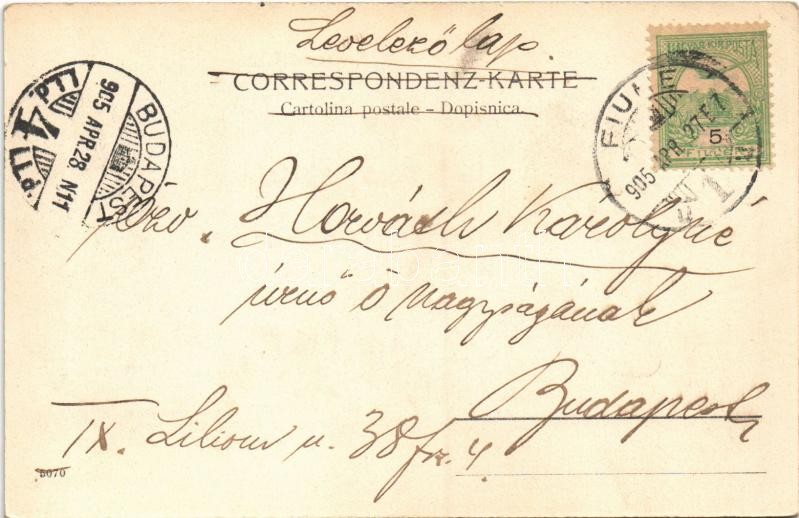 Levelező lap.
CORRESPONDENZ-KARTE
Cartolina postale – Dopisnica.
MAGYAR KIR. POSTA
5
FIUME
905 APR 27
BUDAPEST
905 APR. 28. N11
Özv. Horváth Károlyné
úrnő Ő Nagyságának
Budapest
IX. Liliom u. 38 fsz. 4.
5070